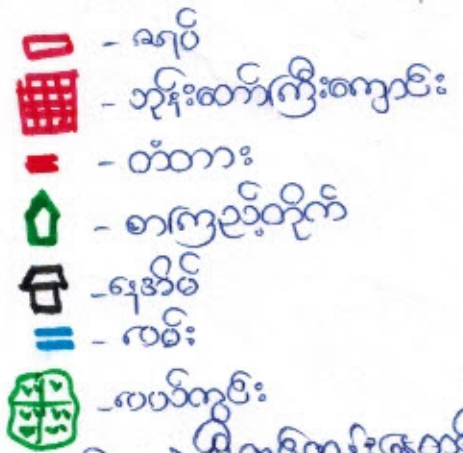 - ဈာပ်
- ဘုန်းတော်ကြီးကျောင်း
- တံတား
- စာကြည့်တိုက်
- နေအိမ်
- လမ်း
- လယ်ကွင်း